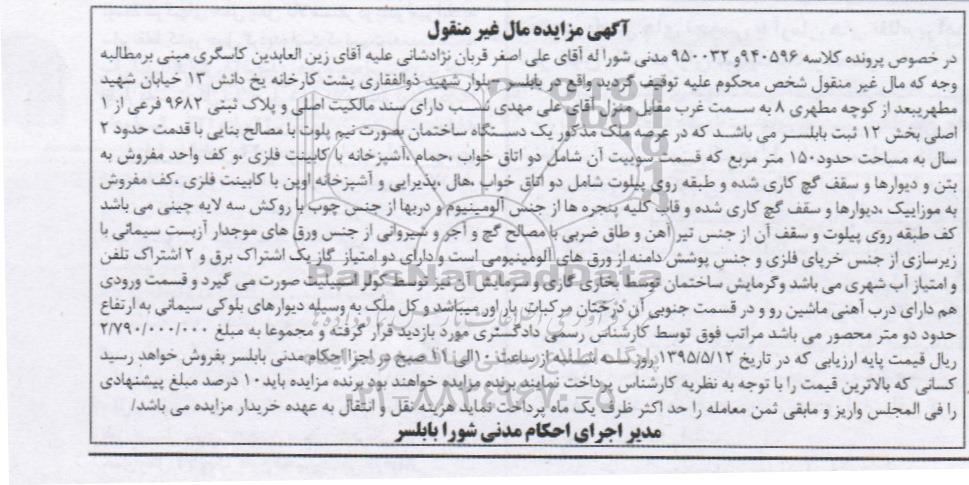 آگهی مزایده مال غیر منقول
در خصوص پرونده کلاسه ۹۴۰۵۹۶و ۹۵۰۰۳۲ مدنی شورا له آقای علی اصغر قربان نژادشانی علیه آقای زین العابدین کاسگری مبنی برمطالبه
وجه که مال غیر منقول شخص محکوم علیه توقیف گردید واقع در بابلسر -بلوار شهید ذوالفقاری پشت کارخانه یخ دانش ۱۳ خیابان شهید
مطهریبعد از کوچه مطهری ۸ به سمت غرب مقابل منزل آقای علی مهدی نسب دارای سند مالکیت اصلی و پلاک ثبتی ۹۶۸۲ فرعی از ۱
اصلی بخش ۱۲ ثبت بابلسر می باشد که در عرصه ملک مذکور یک دستگاه ساختمان بصورت نیم پلوت با مصالح بنایی با قدمت حدود ۲
سال به مساحت حدود۱۵۰ متر مربع که قسمت سوییت آن شامل دو اتاق خواب ،حمام ،آشپزخانه با کابینت فلزی ،و کف واحد مفروش به
بتن و دیوارها و سقف گچ کاری شده و طبقه روی پیلوت شامل دو اتاق خواب ،هال ،پذیرایی و آشپزخانه اوپن با کابینت فلزی ،کف مفروش
به موزاییک ،دیوارها و سقف گچ کاری شده و قاب کلیه پنجره ها از جنس آلومینیوم و دربها از جنس چوب با روکش سه لایه چینی می باشد
کف طبقه روی پیلوت و سقف آن از جنس تیر آهن و طاق ضربی با مصالح گچ و آجر و شیروانی از جنس ورق های موجدار آزبست سیمانی با
زیرسازی از جنس خرپای فلزی و جنس پوشش دامنه از ورق های آلومینیومی است و دارای دو امتیاز گاز یک اشتراک برق و ۲ اشتراک تلفن
و امتیاز آب شهری می باشد وگرمایش ساختمان توسط بخاری گازی و سرمایش آن نیز توسط کولر اسپیلیت صورت می گیرد و قسمت ورودی
هم دارای درب آهنی ماشین رو و در قسمت جنوبی آن درختان مرکبات بار اور میباشد و کل ملک به وسیله دیوارهای بلوکی سیمانی به ارتفاع
حدود دو متر محصور می باشد مراتب فوق توسط کارشناس رسمی دادگستری مورد بازدید قرار گرفته و مجموعا به مبلغ ۲/۷۹۰/۰۰۰/۰۰۰
ریال قیمت پایه ارزیابی که در تاریخ ۱۳۹۵/۵/۱۲روز سه شنبه از ساعت ۱۰الی ۱۱ صبح در اجرا احکام مدنی بابلسر بفروش خواهد رسید
کسانی که بالاترین قیمت را با توجه به نظریه کارشناس پرداخت نمایند برنده مزایده خواهند بود برنده مزایده باید۱۰ درصد مبلغ پیشنهادی
را فی المجلس واریز و مابقی ثمن معامله را حد اکثر ظرف یک ماه پرداخت نماید هزینه نقل و انتقال به عهده خریدار مزایده می باشد/
مدیر اجرای احکام مدنی شورا بابلسر
ParsNamadData
۰۲۱-۸۸۳۴۹۶۷۰-۵